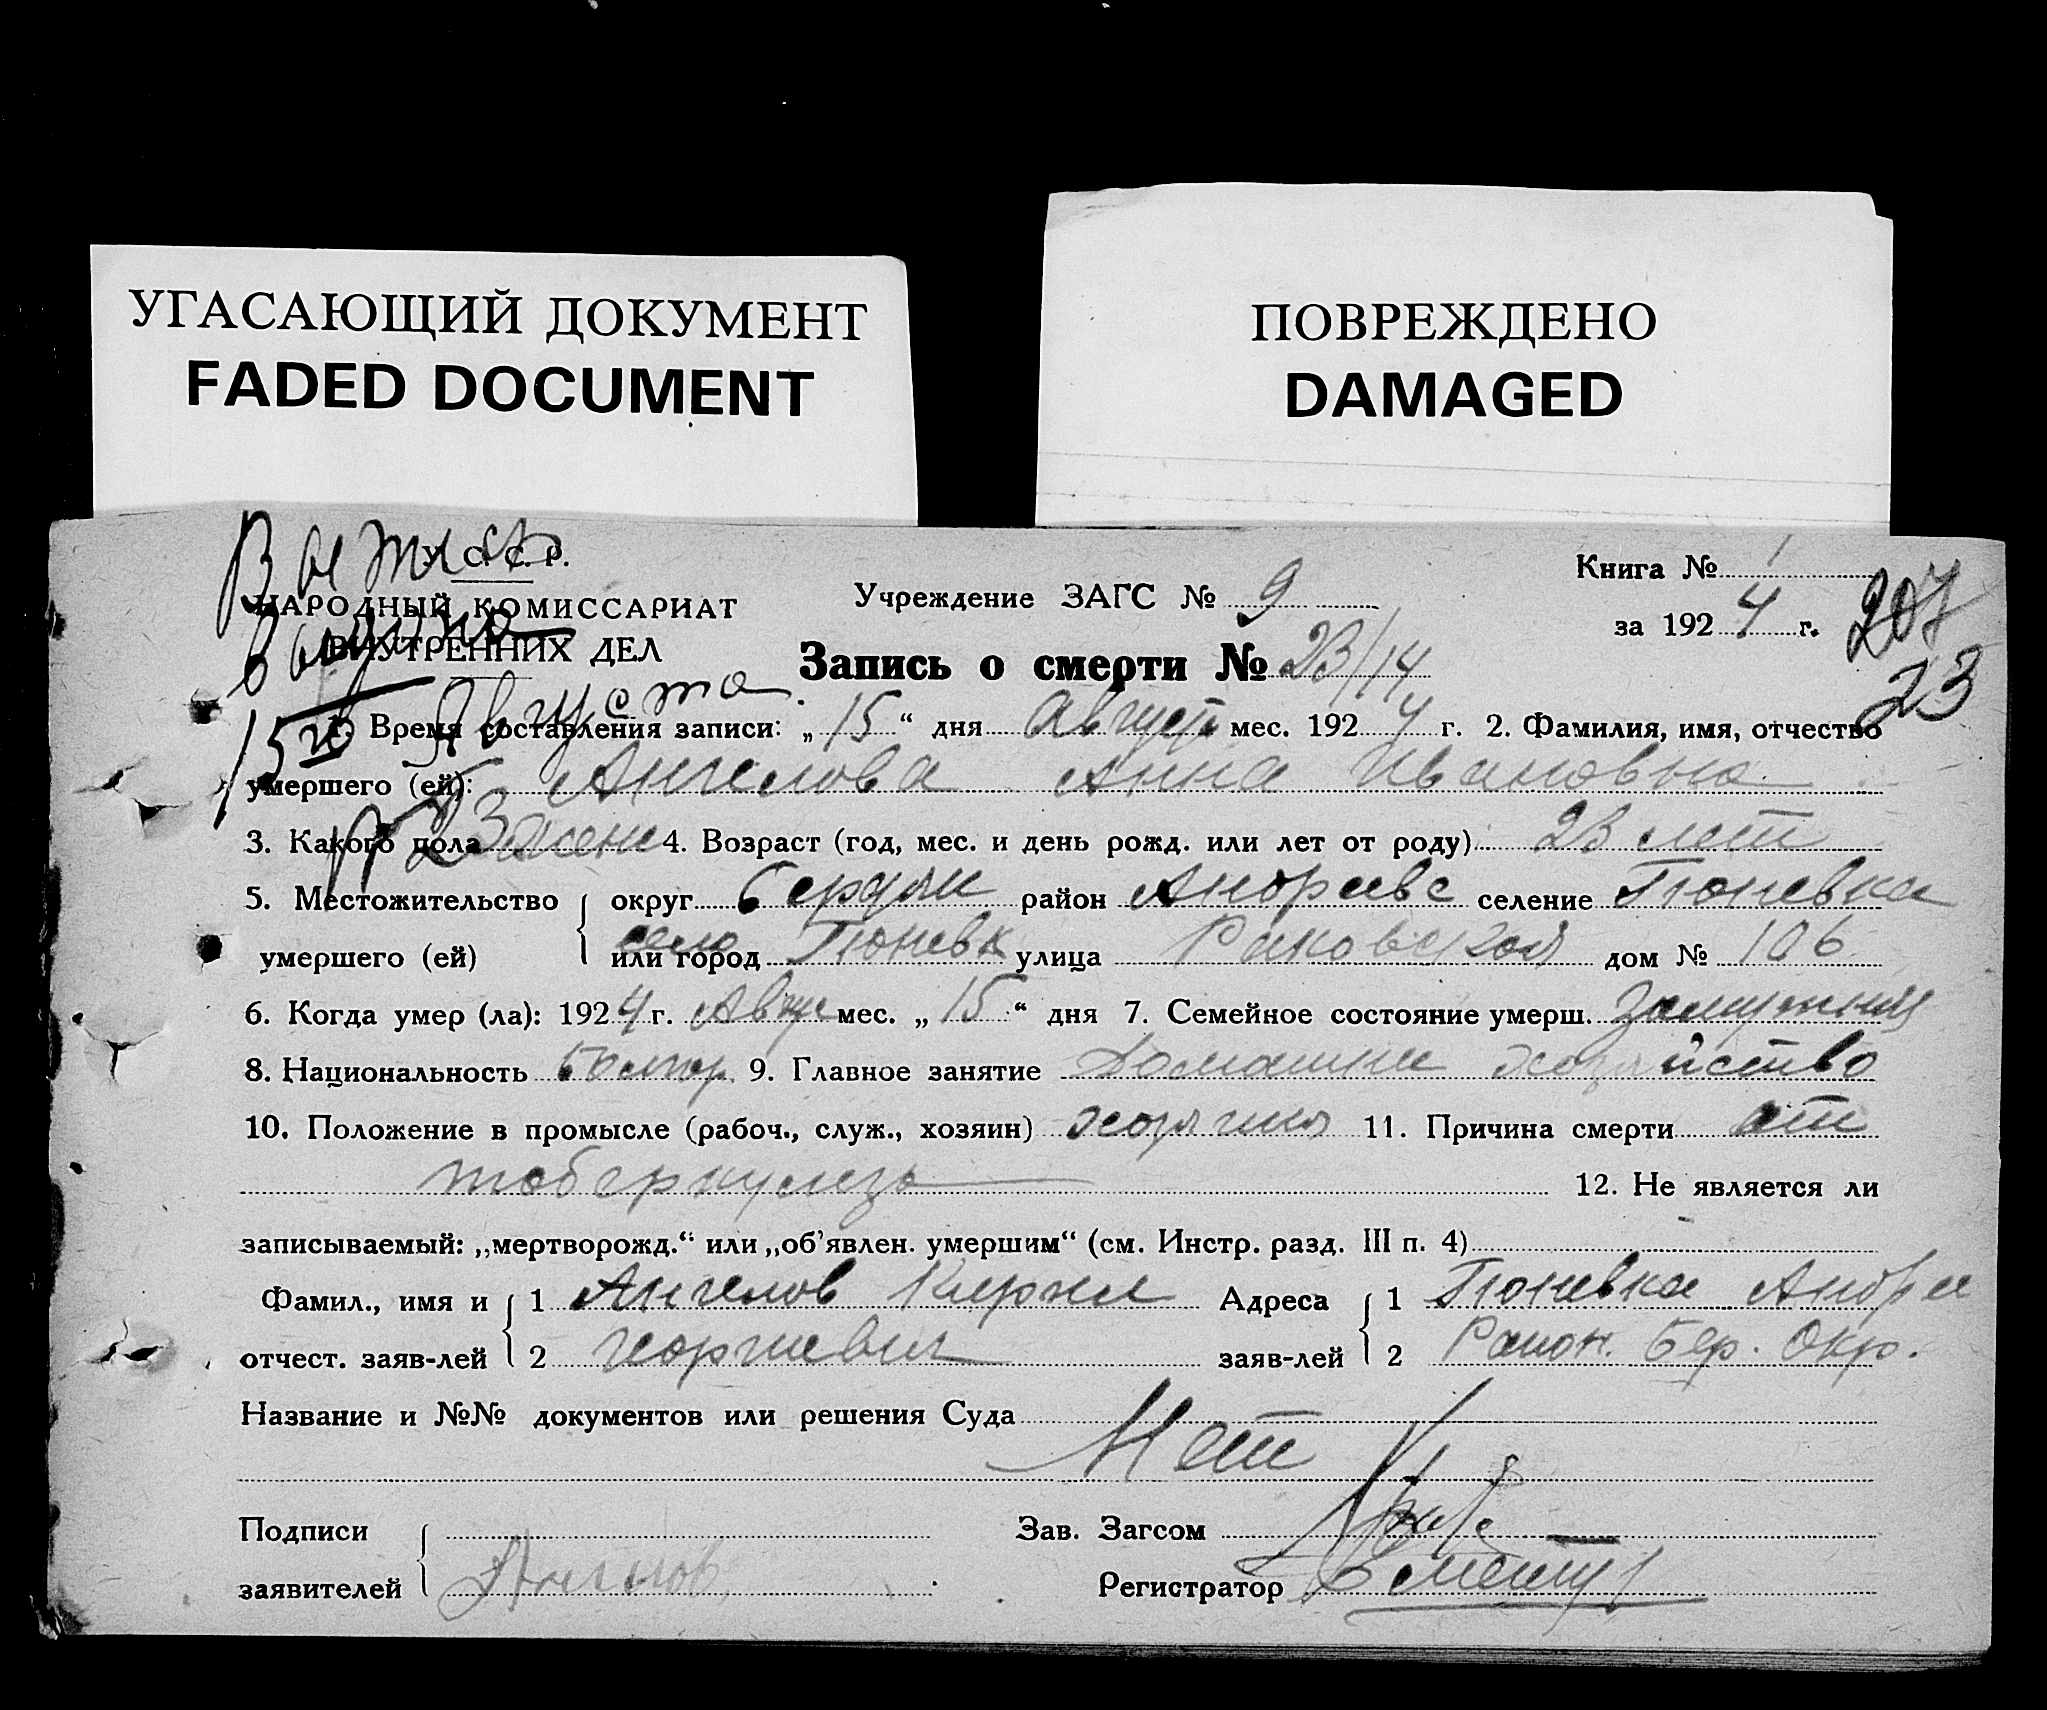 УГАСАЮЩИЙ ДОКУМЕНТ
FADED DOCUMENT
ПОВРЕЖДЕНО
DAMAGED
У. С. С. Р.
НАРОДНЫЙ КОМИССАРИАТ
ВНУТРЕННИХ ДЕЛ
Выпись
выдана
15го Августа
Учреждение ЗАГС № 9
Книга № 1
за 1924 г.
207
23
Запись о смерти № 23/14
1. Время составления записи: „15“ дня Август мес. 1924 г. 2. Фамилия, имя, отчество
умершего (ей): Ангелова Анна Ивановна
3. Какого пола жене 4. Возраст (год, мес. и день рожд. или лет от роду) 23 лет
5. Местожительство округ Бердян район Андреевс селение Тюневка
умершего (ей) село или город Тюневк улица Раковской дом № 106
6. Когда умер (ла): 1924 г. Авгус мес. „15“ дня 7. Семейное состояние умерш. Замужния
8. Национальность Болгар 9. Главное занятие Домашни хозяйство
10. Положение в промысле (рабоч., служ., хозяин) хозяин 11. Причина смерти от
тоберкулеза 12. Не является ли
записываемый: „мертворожд.“ или „об’явлен. умершим“ (см. Инстр. разд. III п. 4)
Фамил., имя и 1 Ангелов Кирил Адреса 1 Тюневка Андре
отчест. заяв-лей 2 георгиевич заяв-лей 2 Район. Бер. Окр.
Название и №№ документов или решения Суда
Нет
Подписи Зав. Загсом
заявителей Ангелов Регистратор